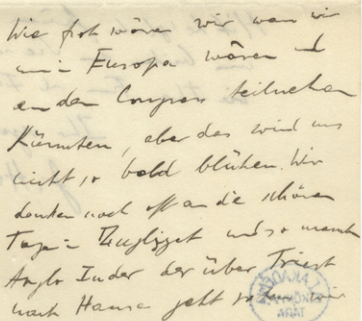 Wie froh wären wir wan wir
in Europa wären und
an dem Congress teilnehmen
Könnten, aber das wird uns
nicht so bald blühen. Wir
denken noch oft an die schönen
Tage in und so manch
Anglo Inder der über Triest
nach Hause geht